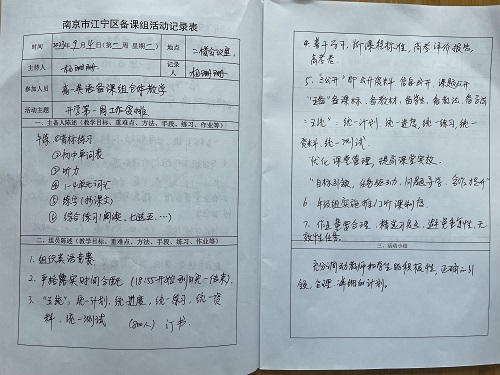 南京市江宁区备课组活动记录表
时间 2023年9月4日(第二周 星期一) 地点 二楼会议室
主持人 杨珊珊 记录人 杨珊珊
参加人员 高一英语备课组全体教师
活动主题 开学第一周工作安排
一、主备人陈述(教学目标、重难点、方法、手段、练习、作业等)
午练 目标练习
①初中单词表
②听力
③
④1-4单元词汇
⑤练字(抄课文)
⑥综合练习(阅读、七选五…)
二、组员陈述(教学目标、重难点、方法、手段、练习、作业等)
1. 组织英语竞赛
2. 严格落实时间分配
3. “五统”:统一计划、统一进度、统一练习、统一资
料、统一测试 (800人) 订书
4. 新课程标准, 高考评价报告,
高考卷
5. “三公开”即 公开资料 信息公开、课题公开
“五备”备课标、备教材、备学生、备教法、备
“五统”:统一计划、统一进度、统一练习、统一
资料、统一测试
优化课堂管理,提高课堂实效
“目标引领、任务驱动、问题导学、合作提升”
6. 年级组实施推门听课制度
7. 作业量要合理、精选习题、避免重复性、无
效性作业
三、活动小结
充分调动教师和学生的积极性,正确引
领,合理、详细的计划。